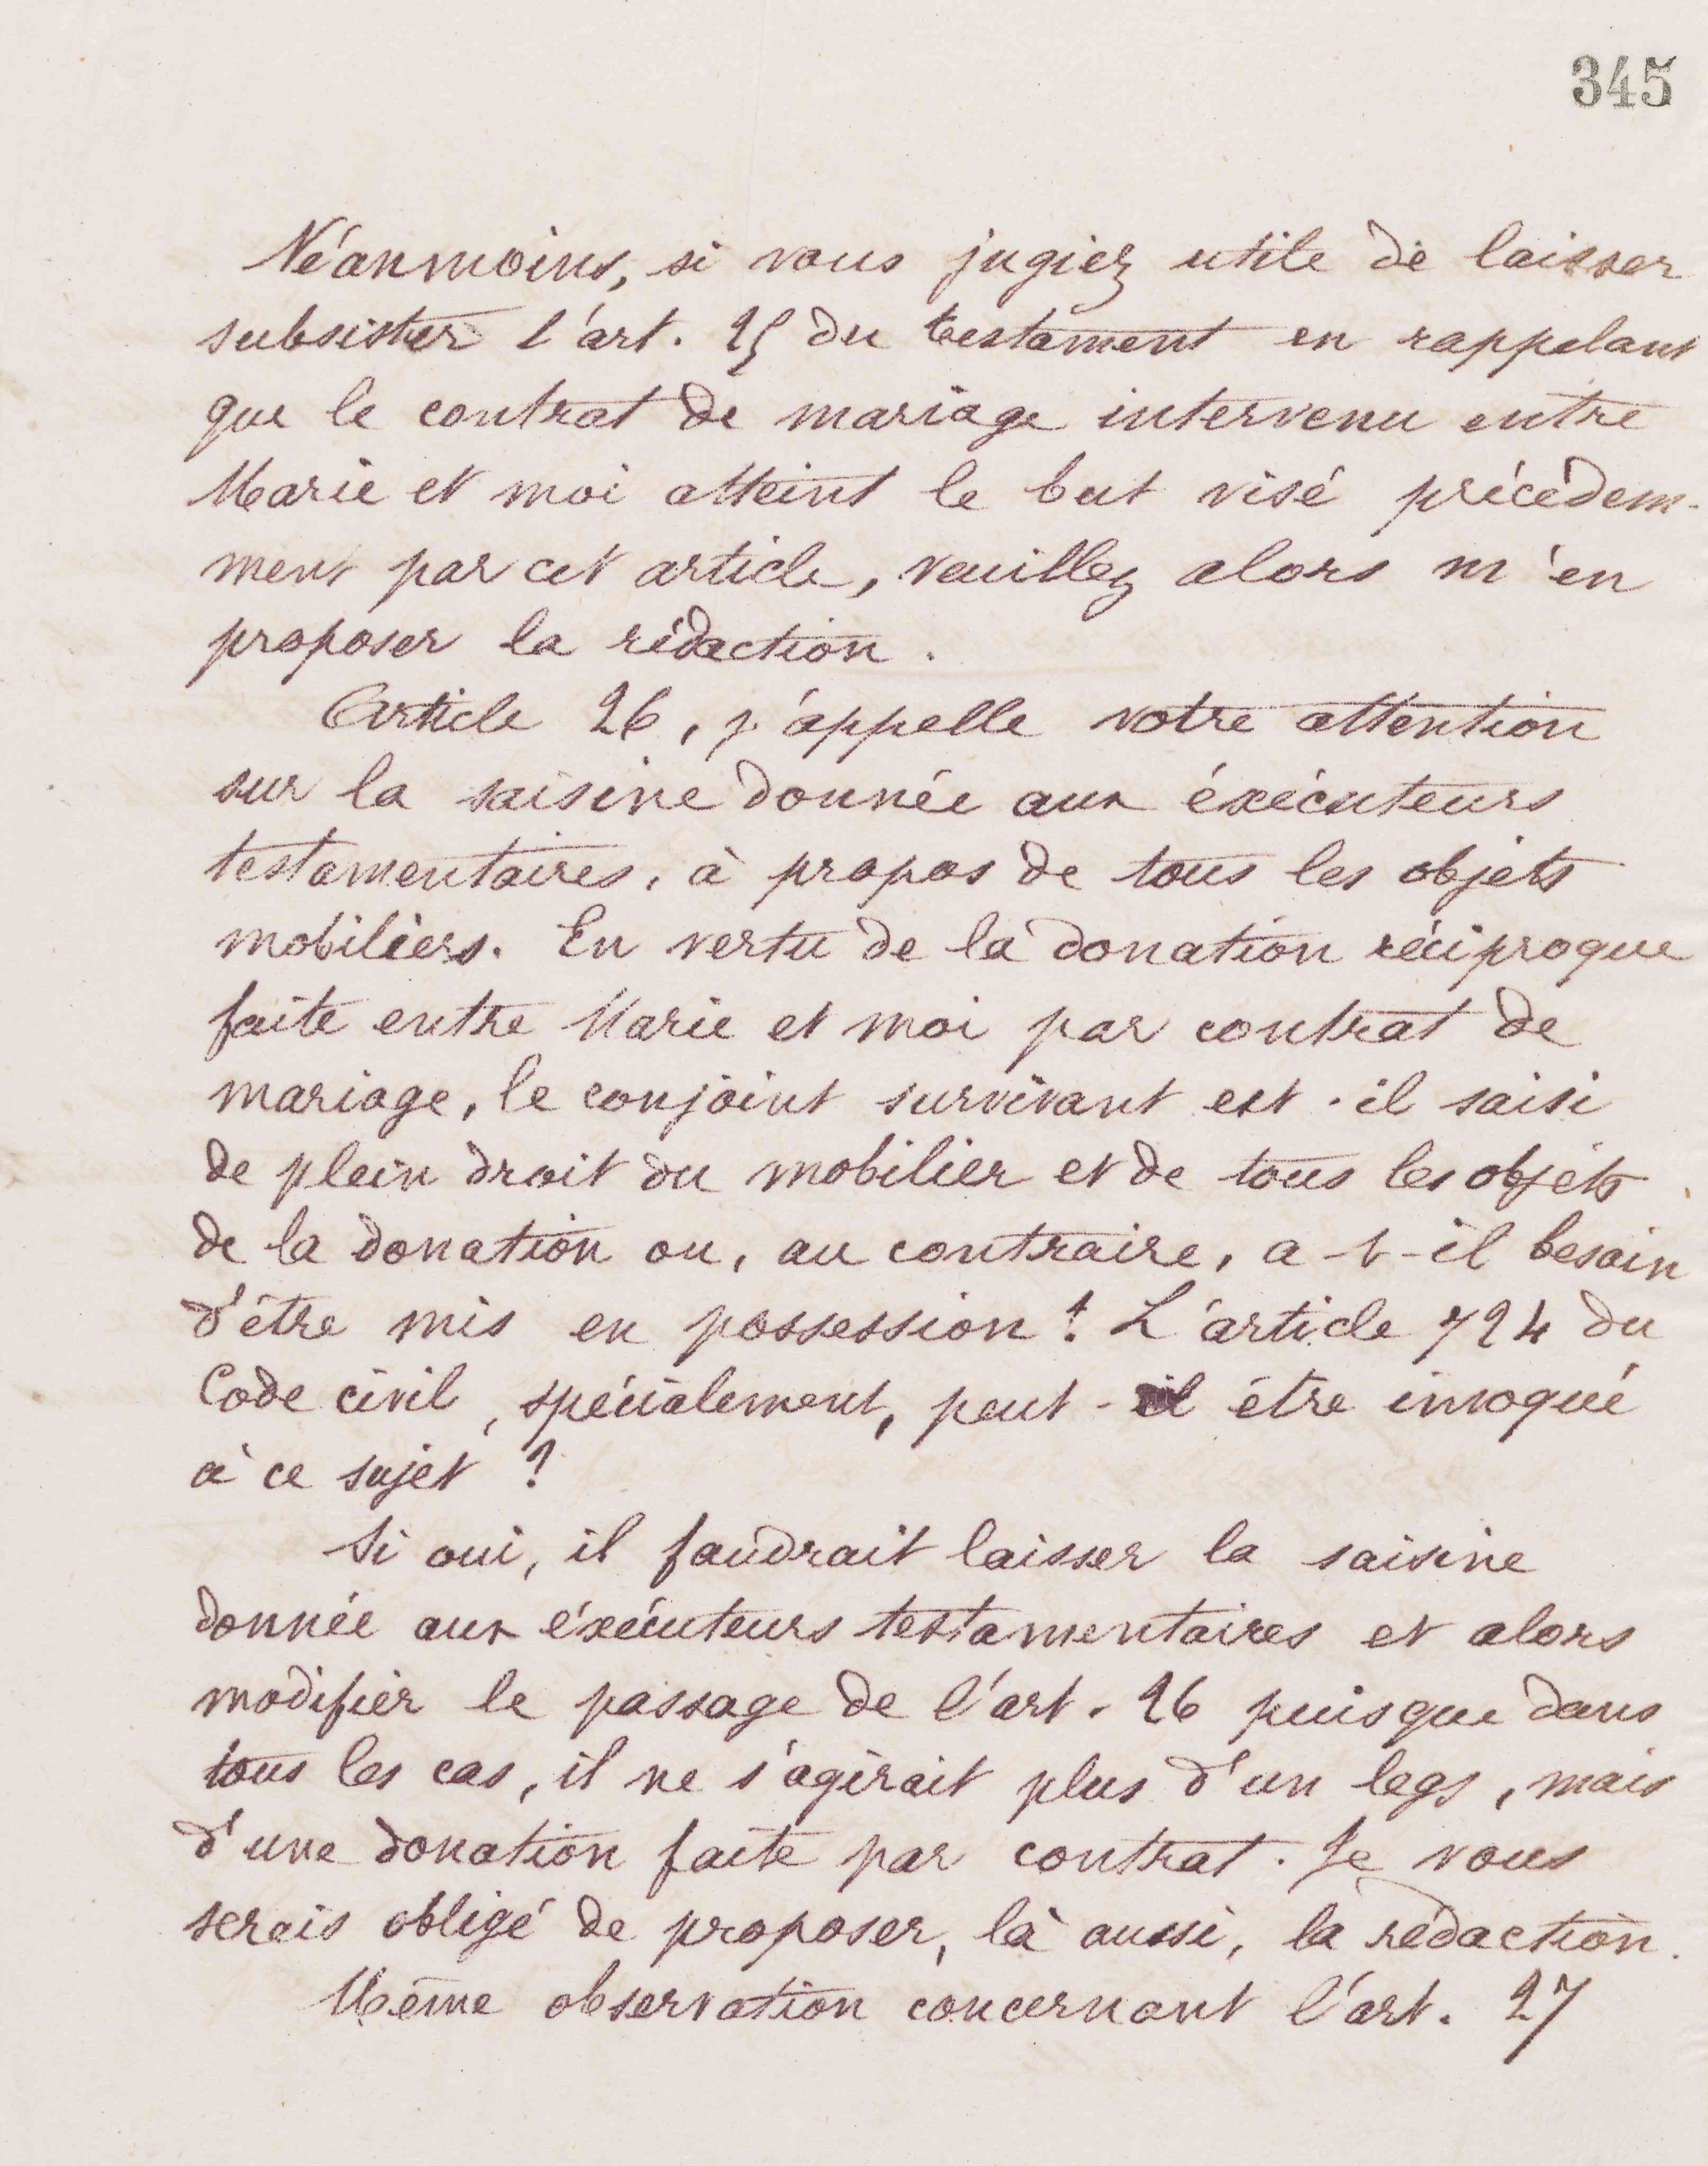 345
Néanmoins, si vous jugiez utile de laisser
subsister l'art. 25 du testament en rappelant
que le contrat de mariage intervenu entre
Marie et moi atteint le but visé précédem-
ment par cet article, veuillez alors m'en
proposer la rédaction.
Article 26, j'appelle votre attention
sur la saisine donnée aux éxécuteurs
testamentaires, à propos de tous les objets
mobiliers. En vertu de la donation réciproque
faite entre Marie et moi par contrat de
mariage, le conjoint survivant est-il saisi
de plein droit du mobilier et de tous les objets
de la donation ou, au contraire, a-t-il besoin
d'être mis en possession? L'article 724 du
Code civil, spécialement, peut-il être invoqué
à ce sujet ?
Si oui, il faudrait laisser la saisine
donnée aux éxécuteurs testamentaires et alors
modifier le passage de l'art. 26 puisque dans
tous les cas, il ne s'agirait plus d'un legs, mais
d'une donation faite par contrat. Je vous
serais obligé de proposer, là aussi, la rédaction.
Même observation concernant l'art. 27